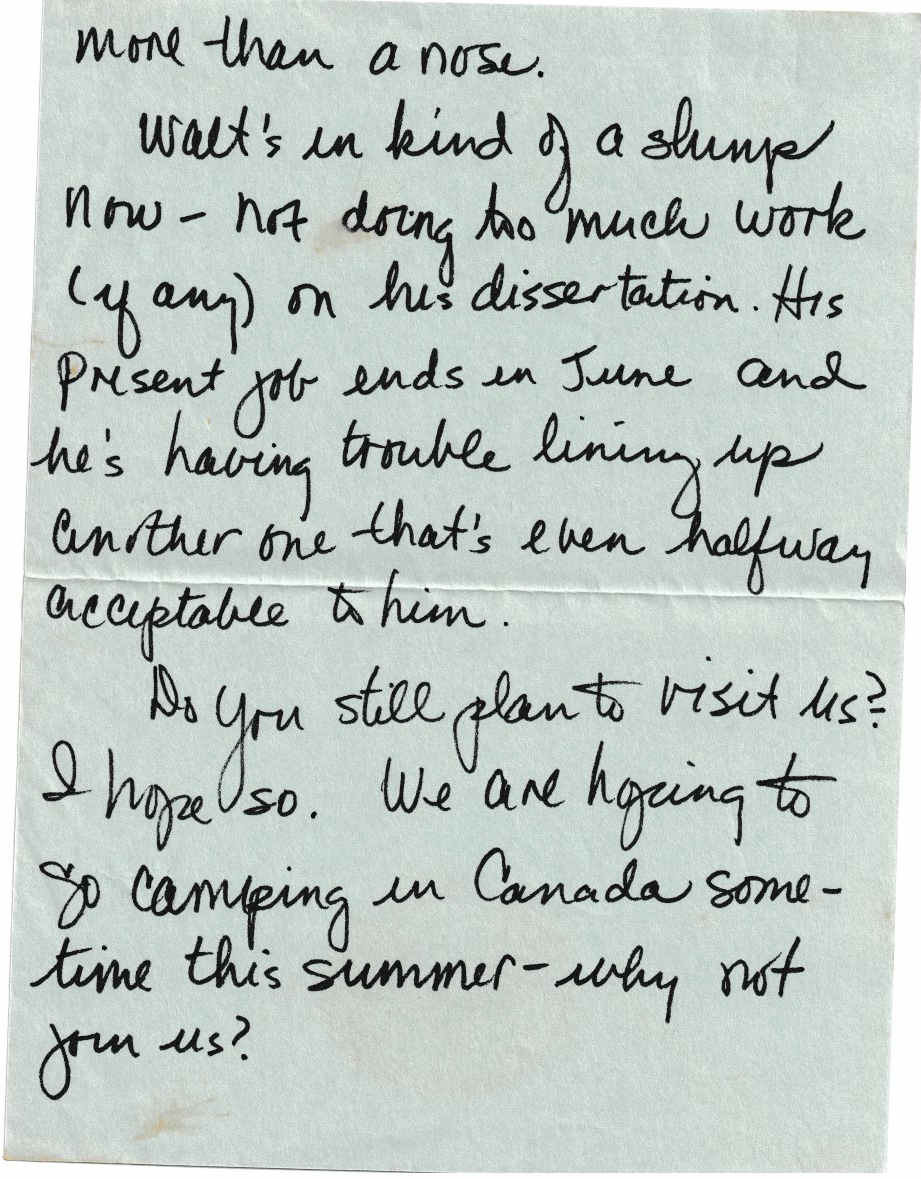 more than a nose.
Walt's in kind of a slump
now - not doing too much work
(if any) on his dissertation. His
present job ends in June and
he's having trouble lining up
another one that's even halfway
acceptable to him.
Do you still plan to visit us?
I hope so. We are hoping to
go camping in Canada some-
time this summer - why not
join us?